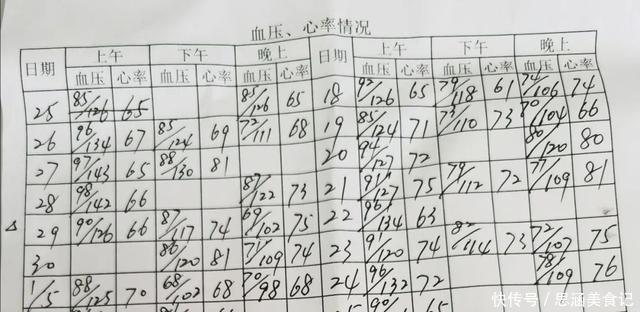 血压、心率情况
日期 上午 下午 晚上 日期 上午 下午 晚上
血压 心率 血压 心率 血压 心率 血压 心率 血压 心率 血压 心率
25 85/126 65 85/126 65 18 92/126 65 79/118 61 74/106 74
26 96/134 67 85/124 69 72/111 68 19 85/124 71 73/110 73 70/104 66
27 97/143 65 88/130 81 20 94/127 72 80/120 80
28 98/142 66 87/122 73 21 91/127 75 79/112 72 77/109 81
△ 29 90/126 66 87/117 74 69/102 75 22 96/134 63
30 86/120 81 71/109 74 23 91/120 74 82/114 73 72/107 75
1/5 88/125 70 68/102 68 70/98 68 24 96/132 72 78/109 76
90/ 65
快传号/思涵美食记